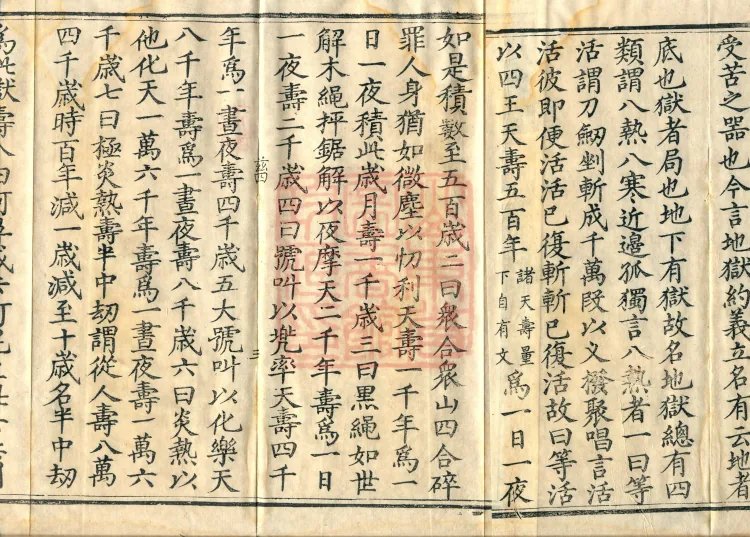 受苦之器也今言地獄約義立名有云地者
底也獄者局也地下有獄故名地獄總有四
類謂八熱八寒近邊孤獨言八熱者一曰等
活謂刀劒剉斬成千萬段以义撥聚唱言活
活彼即便活活已復斬斬已復活故曰等活
以四王天壽五百年諸天壽量下自有文爲一日一夜
如是積數至五百歲二曰衆合衆山四合碎
罪人身猶如微塵以忉利天壽一千年爲一
日一夜積此歲月壽一千歲三曰黑繩如世
解木繩抨鋸解以夜摩天二千年壽爲一日
一夜壽二千歲四曰號叫以兠率天壽四千
三
年爲一晝夜壽四千歲五大號叫以化樂天
八千年壽爲一晝夜壽八千歲六曰炎熱以
他化天一萬六千年壽爲一晝夜壽一萬六
千歲七曰極炎熱壽半中劫謂從人壽八萬
四千歲時百年減一歲減至十歲名半中劫